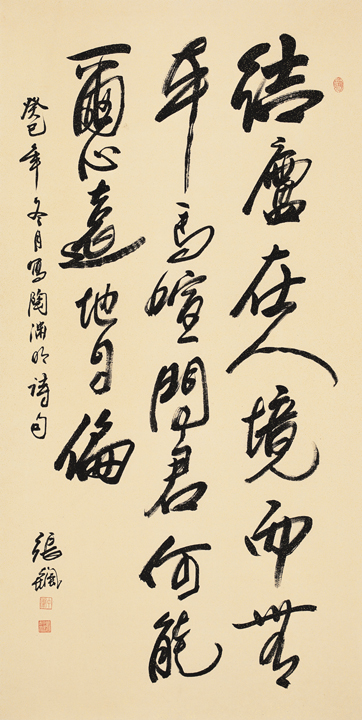 結廬在人境而無
車馬喧問君何能
爾心遠地自偏
癸巳年冬月寫陶淵明詩句
張